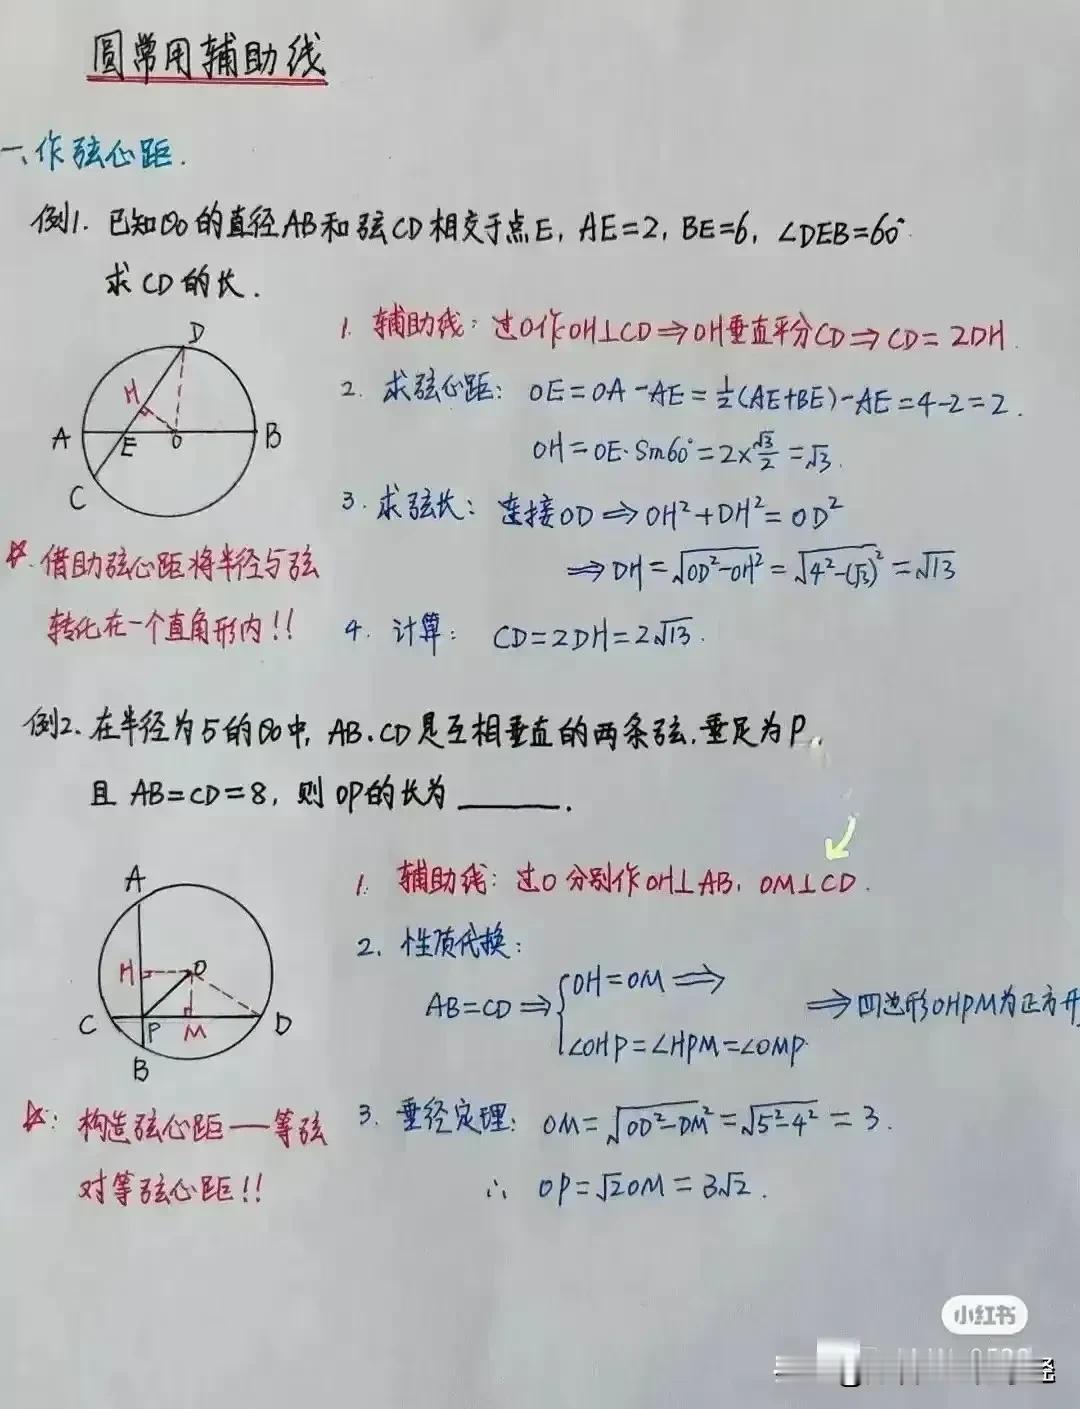 圆常用辅助线
一、作弦心距.
例1. 已知⊙O的直径AB和弦CD相交于点E, AE=2, BE=6, ∠DEB=60°.
求CD的长.
D
H
A
E
O
B
C
1. 辅助线: 过O作OH⊥CD⇒OH垂直平分CD⇒CD=2DH.
2. 求弦心距: OE=OA-AE=½(AE+BE)-AE=4-2=2.
OH=OE·Sin60°=2×√3/2=√3.
3. 求弦长: 连接OD⇒OH²+DH²=OD²
⇒DH=√OD²-OH²=√4²-(√3)²=√13
4. 计算: CD=2DH=2√13.
☆. 借助弦心距将半径与弦
转化在一个直角形内!!
例2. 在半径为5的⊙O中, AB.CD是互相垂直的两条弦.垂足为P,
且AB=CD=8, 则OP的长为______.
A
H
O
C
P
M
D
B
1. 辅助线: 过O分别作OH⊥AB, OM⊥CD.
2. 性质代换:
AB=CD⇒{OH=OM⇒ ⇒四边形OHPM为正方形
∠OHP=∠HPM=∠OMP.
3. 垂径定理: OM=√OD²-DM²=√5²-4²=3.
∴ OP=√2OM=3√2.
☆: 构造弦心距——等弦
对等弦心距!!
小红书